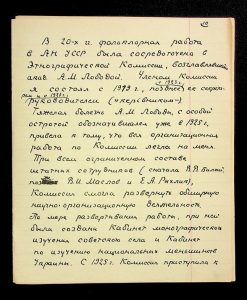 В 20-х гг. фольклорная работа
в АН УССР была сосредоточена в
Этнографической Комиссии, возглавляемой
акад. А.М. Лободой. Членом Комиссии
я состоял с 1923 г., позднее ее
руководителем ("керівником")
Тяжелая болезнь А.М. Лободы, с особой
остротой обозначившаяся уже в 1925 г.,
привела к тому, что вся организационная
работа по Комиссии легла на меня.
При всем ограниченном составе
штатных сотрудников (сначала В.В. Белый,
В.И. Маслов и Е.А. Рихлик),
Комиссии смогла развернуть обширную
научно-организационную деятельность.
По мере развертывания работы, при ней
были созданы Кабинет монографического
изучения советского села и Кабинет
по изучению национальных меньшинств
Украины. С 1925 г. Комиссия приступила к